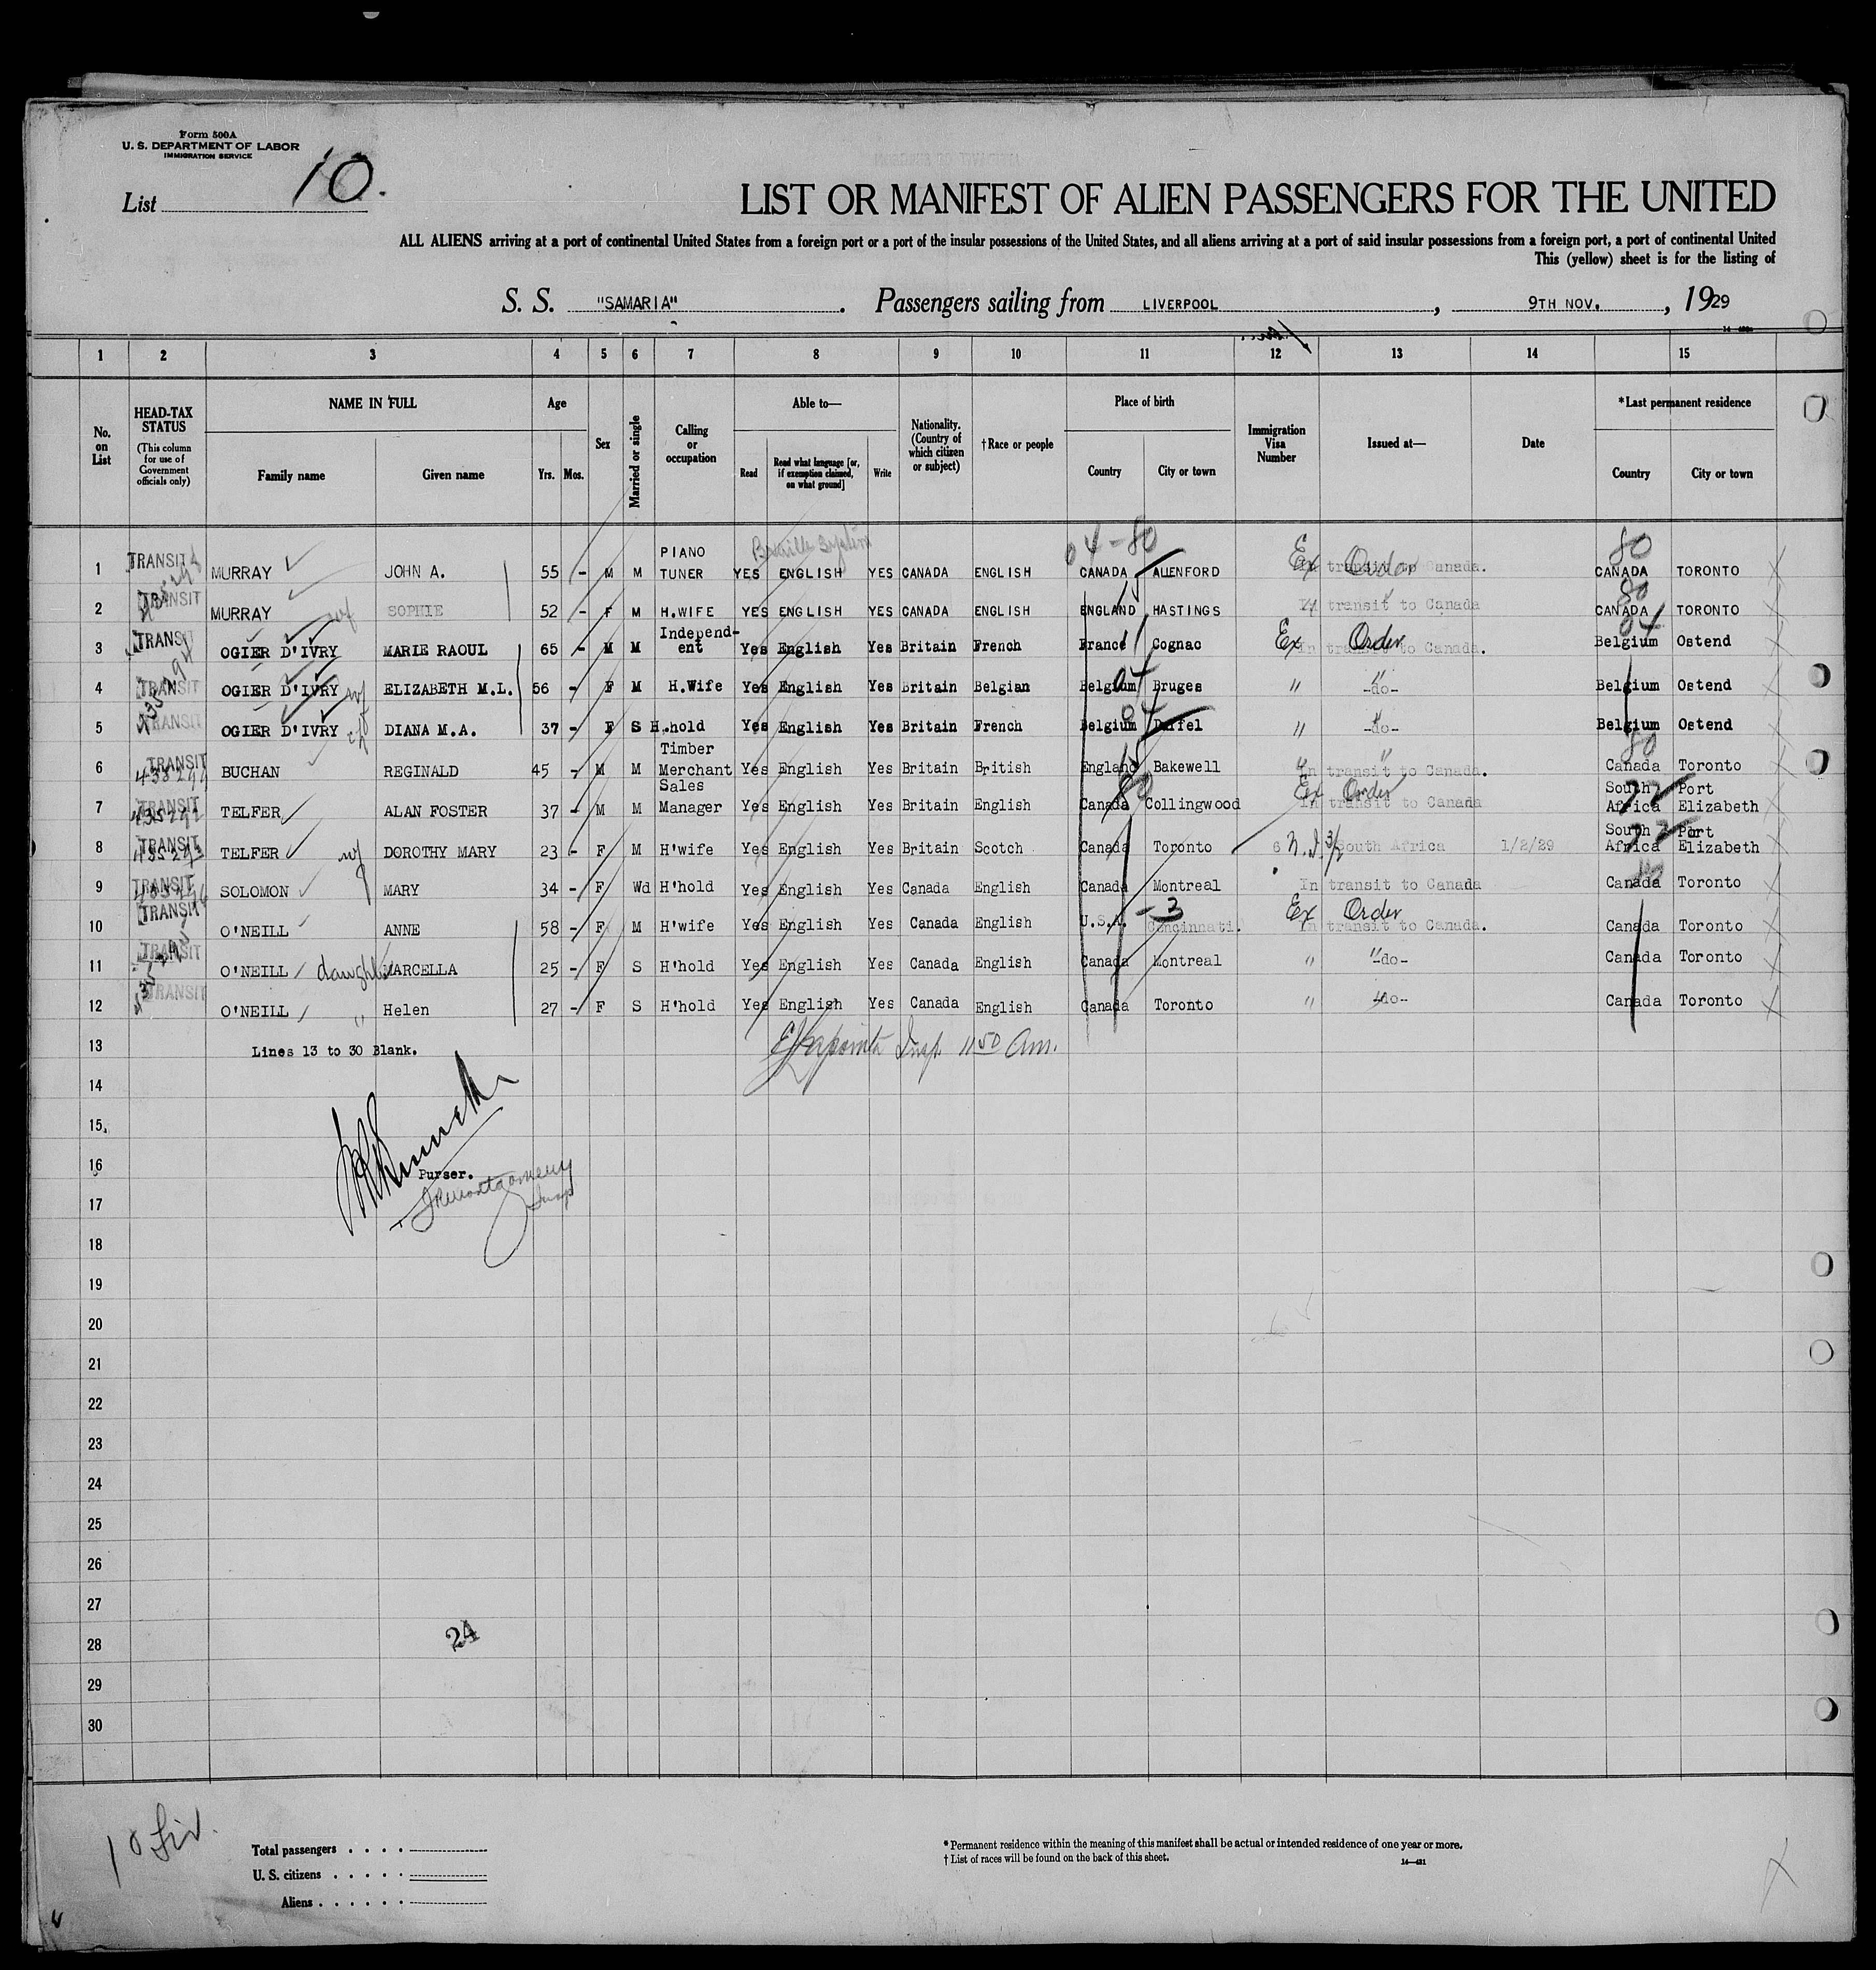 Form 500A
U. S. DEPARTMENT OF LABOR
IMMIGRATION SERVICE
List 10.
LIST OR MANIFEST OF ALIEN PASSENGERS FOR THE UNITED
ALL ALIENS arriving at a port of continental United States from a foreign port or a port of the insular possessions of the United States, and all aliens arriving at a port of said insular possessions from a foreign port, a port of continental United
This (yellow) sheet is for the listing of
S. S. "SAMARIA". Passengers sailing from LIVERPOOL, 9TH NOV., 1929
1 2 3 4 5 6 7 8 9 10 11 12 13 14 15
No. on List
HEAD-TAX STATUS (This column for use of Government officials only)
NAME IN FULL Family name Given name
Age Yrs. Mos.
Sex
Married or single
Calling or occupation
Able to— Read Read what language [or, if exemption claimed, on what ground] Write
Nationality. (Country of which citizen or subject)
†Race or people
Place of birth Country City or town
Immigration Visa Number
Issued at—
Date
*Last permanent residence Country City or town
Braille System 04-80 80
1 TRANSIT MURRAY JOHN A. 55 - M M PIANO TUNER YES ENGLISH YES CANADA ENGLISH CANADA ALLENFORD Ex Order In transit to Canada. CANADA TORONTO
2 TRANSIT MURRAY wf SOPHIE 52 - F M H.WIFE YES ENGLISH YES CANADA ENGLISH ENGLAND HASTINGS In transit to Canada 80 CANADA TORONTO
3 TRANSIT OGIER D'IVRY MARIE RAOUL 65 - M M Independ-ent Yes English Yes Britain French France Cognac Ex Order In transit to Canada. 04 Belgium Ostend
4 TRANSIT OGIER D'IVRY wf ELIZABETH M.L. 56 - F M H.Wife Yes English Yes Britain Belgian Belgium 04 Bruges " -do- Belgium Ostend
5 TRANSIT OGIER D'IVRY DIANA M.A. 37 - F S H.hold Yes English Yes Britain French Belgium 04 Duffel " -do- Belgium Ostend
6 TRANSIT BUCHAN REGINALD 45 - M M Timber Merchant Yes English Yes Britain British England Bakewell " In transit to Canada. 80 Canada Toronto
7 TRANSIT 435292 TELFER ALAN FOSTER 37 - M M Sales Manager Yes English Yes Britain English Canada 80 Collingwood Ex Order In transit to Canada South Africa 72 Port Elizabeth
8 TRANSIT 435293 TELFER wf DOROTHY MARY 23 - F M H'wife Yes English Yes Britain Scotch Canada Toronto 6 N.I. 3/2 South Africa 1/2/29 South Africa 72 Port Elizabeth
9 TRANSIT SOLOMON MARY 34 - F Wd H'hold Yes English Yes Canada English Canada Montreal In transit to Canada Canada Toronto
10 TRANSIT O'NEILL ANNE 58 - F M H'wife Yes English Yes Canada English U.S.A. -3 Cincinnati. Ex Order In transit to Canada. Canada Toronto
11 TRANSIT O'NEILL daughter MARCELLA 25 - F S H'hold Yes English Yes Canada English Canada Montreal " -do- Canada Toronto
12 TRANSIT O'NEILL " Helen 27 - F S H'hold Yes English Yes Canada English Canada Toronto " -do- Canada Toronto
13 Lines 13 to 30 Blank. Insp. 11 50 Am.
14
15
16 Purser.
17 Montgomery Insp
18
19
20
21
22
23
24
25
26
27
28 24
29
30
10
Total passengers
U. S. citizens
Aliens
* Permanent residence within the meaning of this manifest shall be actual or intended residence of one year or more.
† List of races will be found on the back of this sheet.
14—421